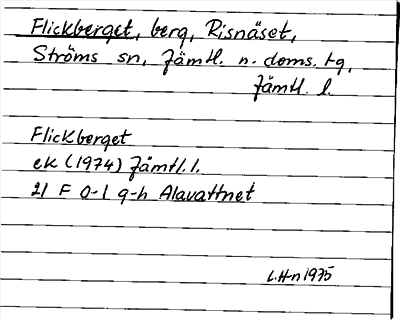 Flickberget, berg, Risnäset,
Ströms sn, Jämtl. n. doms. tg,
Jämtl. l.
Flickberget
ek (1974) Jämtl. l.
21 F 0-1 g-h Alavattnet
L.H-n 1975